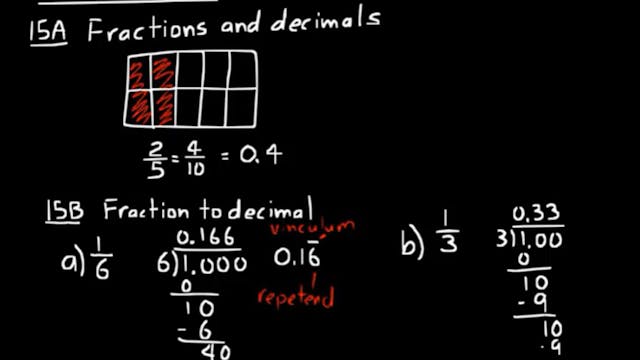 15A Fractions and decimals
2/5 = 4/10 = 0.4
15B Fraction to decimal
vinculum
a) 1/6
0.166
6)1.000
0
10
- 6
40
0.16̅
repetend
b) 1/3
0.33
3)1.00
0
10
- 9
10
- 9